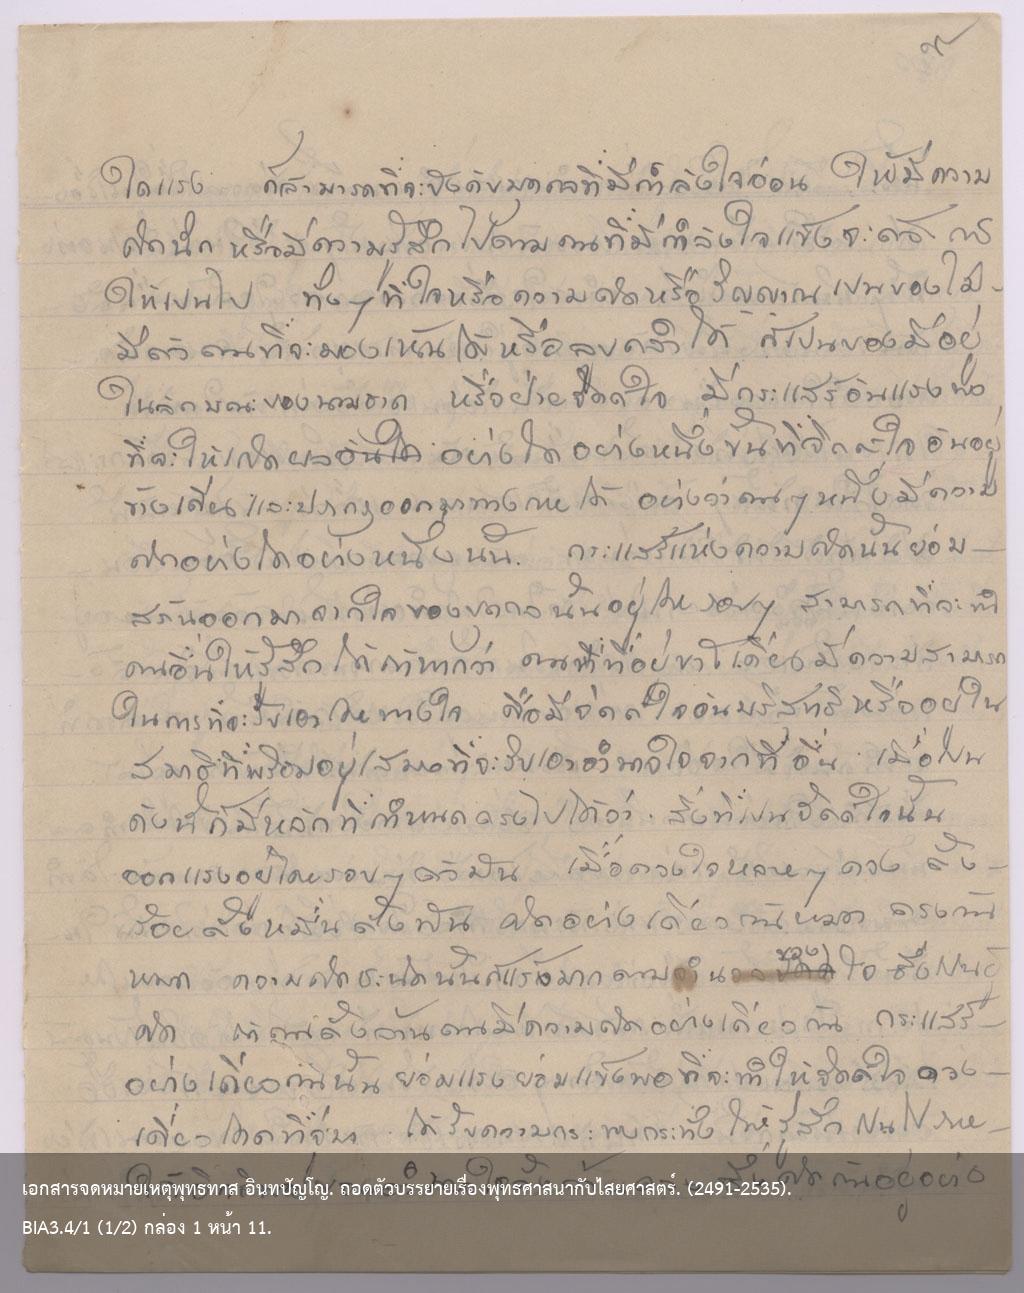 ใดแรง ก็สามารถที่จะบังคับบุคคลที่มีกำลังใจอ่อน ให้มีความ
คิดนึก หรือมีความรู้สึก ไปตามคนที่มีกำลังใจแข็งจะ
ให้เป็นไป ทั้งๆที่ใจหรือความคิดหรือวิญญาณ เป็นของไม่
มีตัวตนที่จะมองเห็นได้ หรือลูบคลำได้ ก็เป็นของมีอยู่
ในลักษณะของนามธาตุ หรือฝ่ายจิตใจ มีกระแสร์อันแรง
ที่จะให้เกิดผล อย่างใดอย่างหนึ่งขึ้นที่จิตต์ใจอันอยู่
ข้างเคียง และปรากฏออกมาทางกายได้ อย่างว่าคนๆหนึ่งมีความ
คิดอย่างใดอย่างหนึ่งนั้น. กระแสร์แห่งความคิดนั้นย่อม
ออกมาจากใจของบุคคลนั้นอยู่โดยรอบๆ สามารถที่จะทำ
คนอื่นให้รู้สึกได้ ถ้าหากว่า คนที่อยู่ข้างเคียงมีความสามารถ
ในการที่จะรับเอาโดยทางใจ คือมีจิตต์ใจอันบริสุทธิหรืออยู่ใน
สมาธิที่พร้อมอยู่เสมอที่จะรับเอาอำนาจใจจากที่อื่น. เมื่อเป็น
ดังนี้ก็มีหลักที่กำหนดตรงไปได้ว่า. สิ่งที่เป็นจิตต์ใจนั้น
ออกแรงอยู่โดยรอบๆตัวมัน เมื่อดวงใจหลายๆดวง ตั้ง
ร้อยตั้งหมื่นตั้งพัน คิดอย่างเดียวกันหมด ตรงกัน
หมด ความคิดชะนิดนั้นก็แรงมากตามจำนวนของใจ ซึ่งเป็นผู้
คิด ถ้าคนตั้งล้านคนมีความคิดอย่างเดียวกัน กระแสร์
อย่างเดียวกันนั้น ย่อมแรงย่อมแข็งพอที่จะทำให้จิตต์ใจดวง
เดียวโดดที่ ได้รับความกระทบกระทั่ง ให้รู้สึกเป็นไปตาม
อยู่อย่าง
เอกสารจดหมายเหตุพุทธทาส อินทปัญโญ. ถอดตัวบรรยายเรื่องพุทธศาสนากับไสยศาสตร์. (2491-2535).
BIA3.4/1 (1/2) กล่อง 1 หน้า 11.